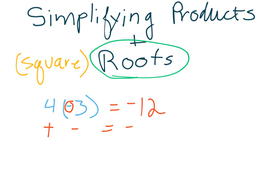 Simplifying Products
+
(square) Roots
4(-3) = -12
+ - = -